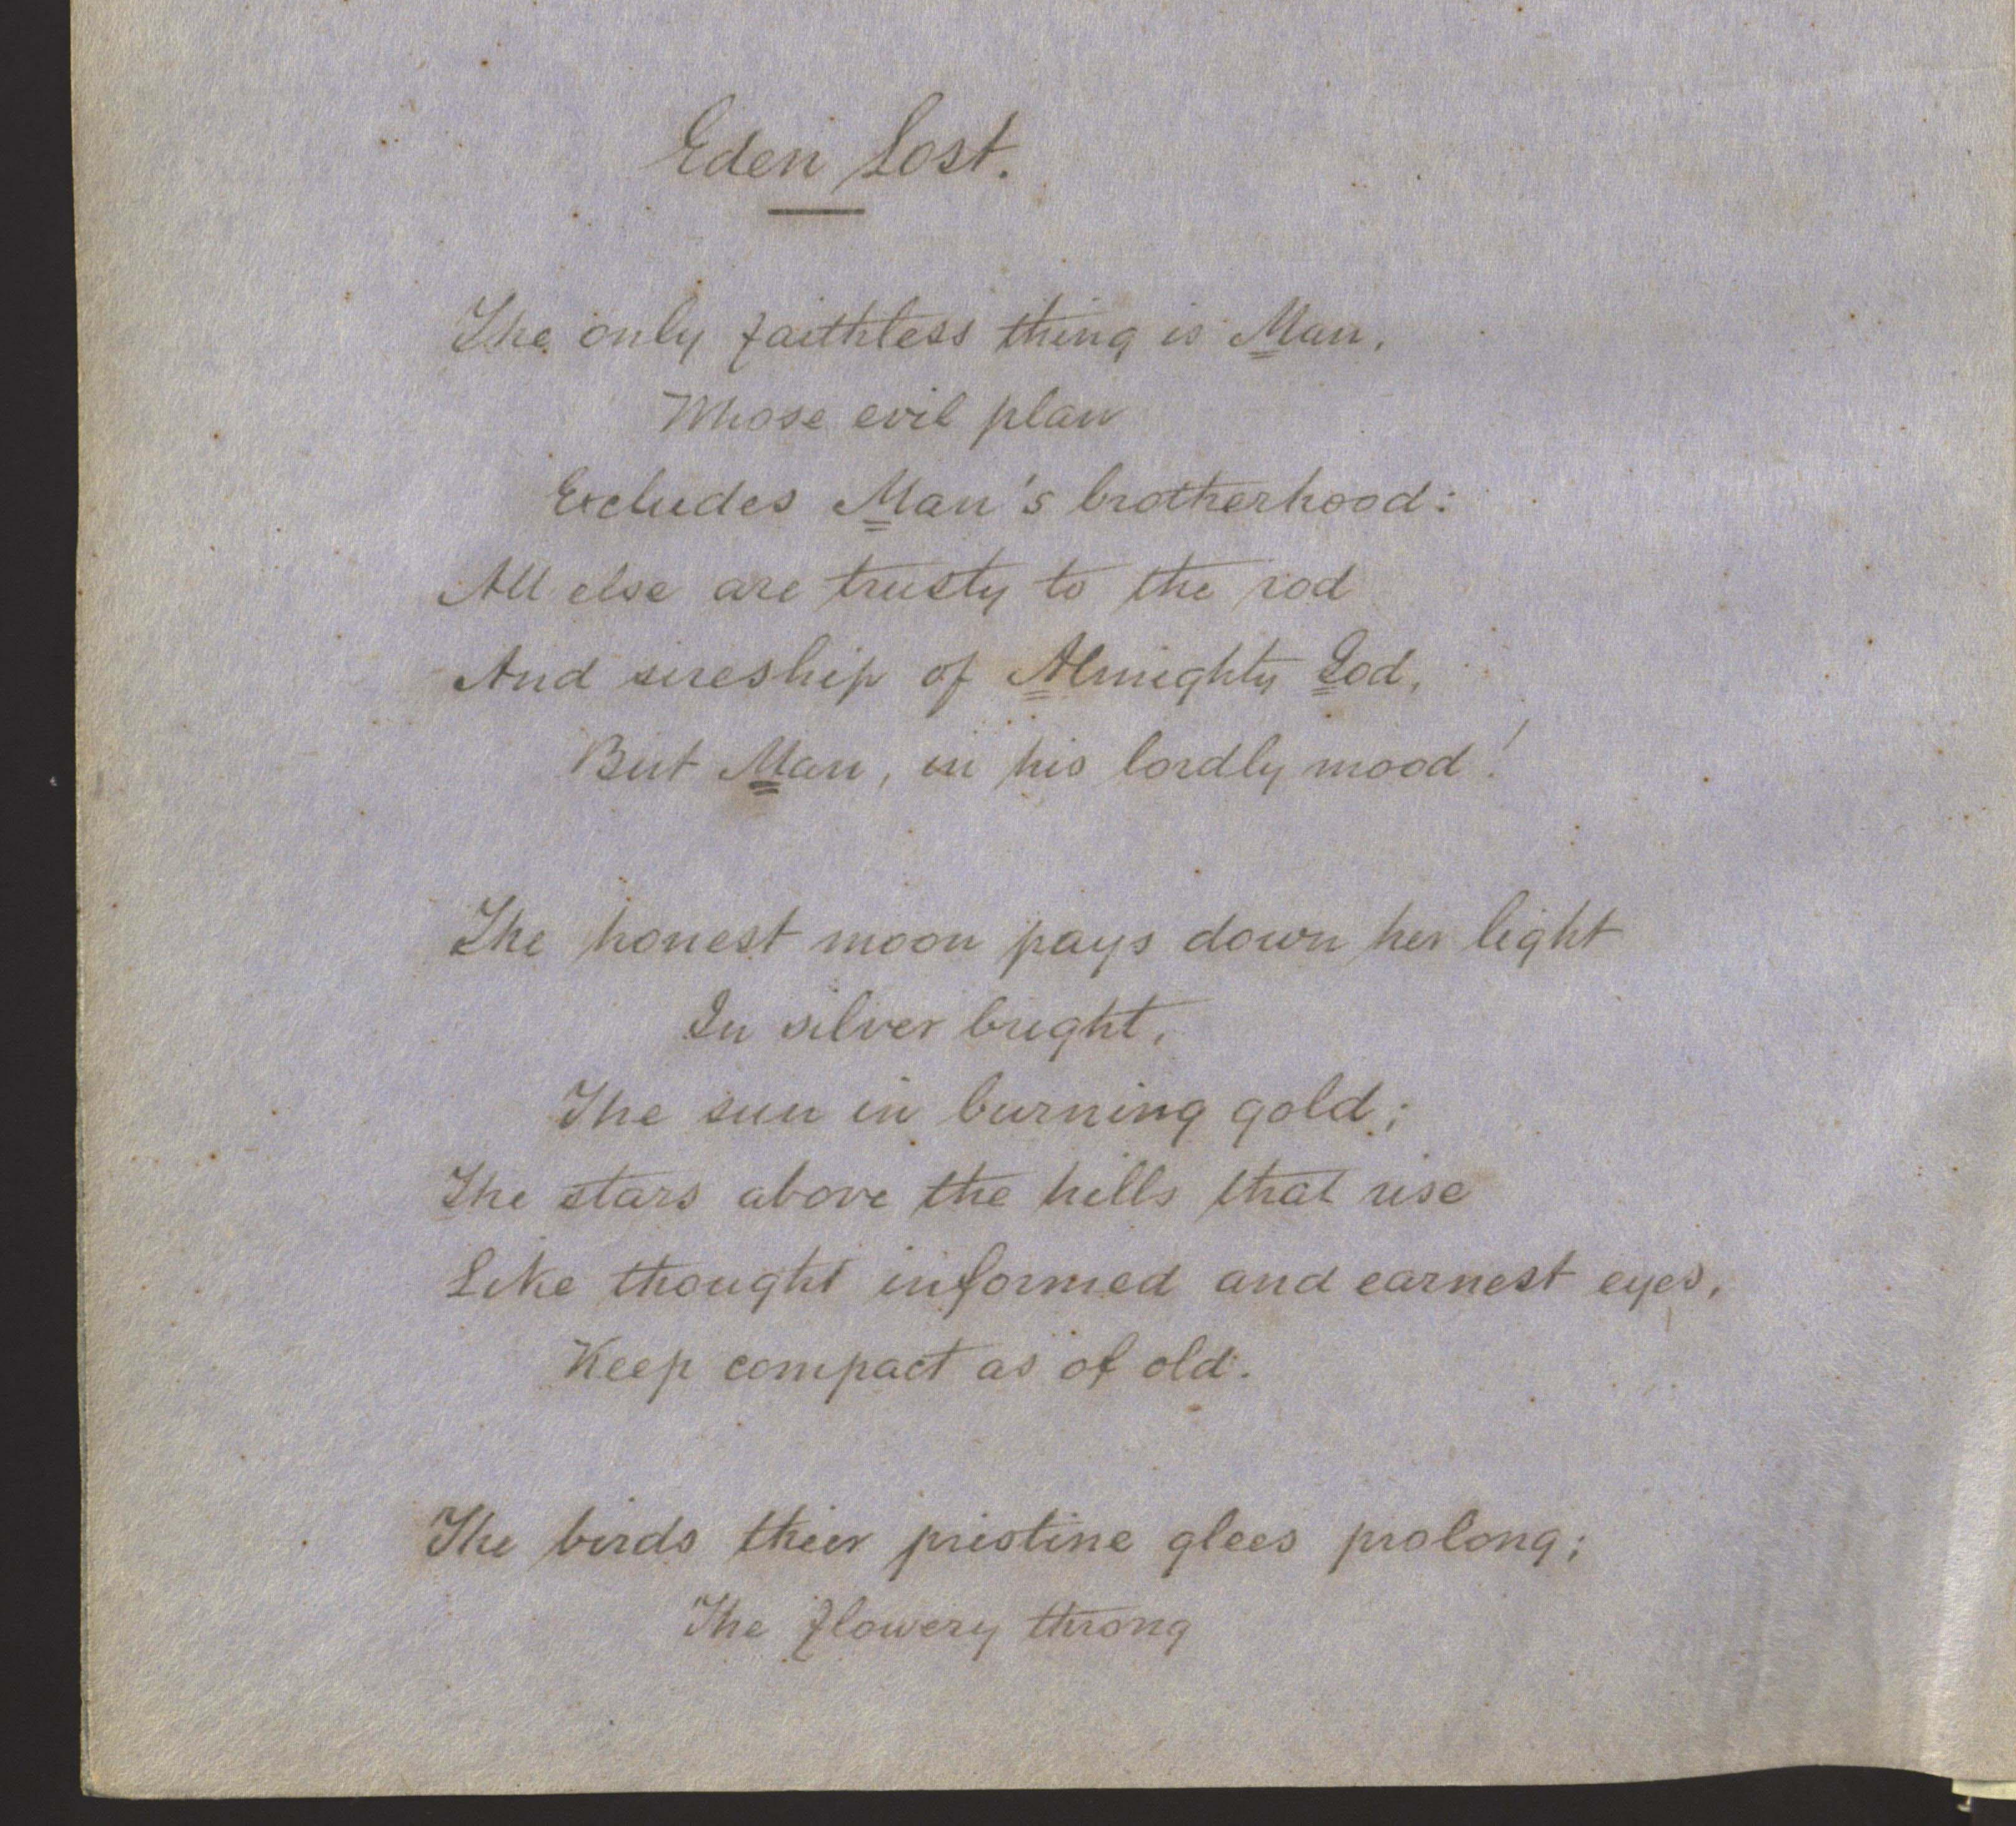 Eden Lost.
The only faithless thing is Man,
Whose evil plan
Excludes Man's brotherhood:
All else are trusty to the rod
And sireship of Almighty God,
But Man, in his lordly mood!
The honest moon pays down her light
In silver bright,
The sun in burning gold;
The stars above the hills that rise
Like thought informed and earnest eyes,
Keep compact as of old.
The birds their pristine glees prolong;
The flowery throng